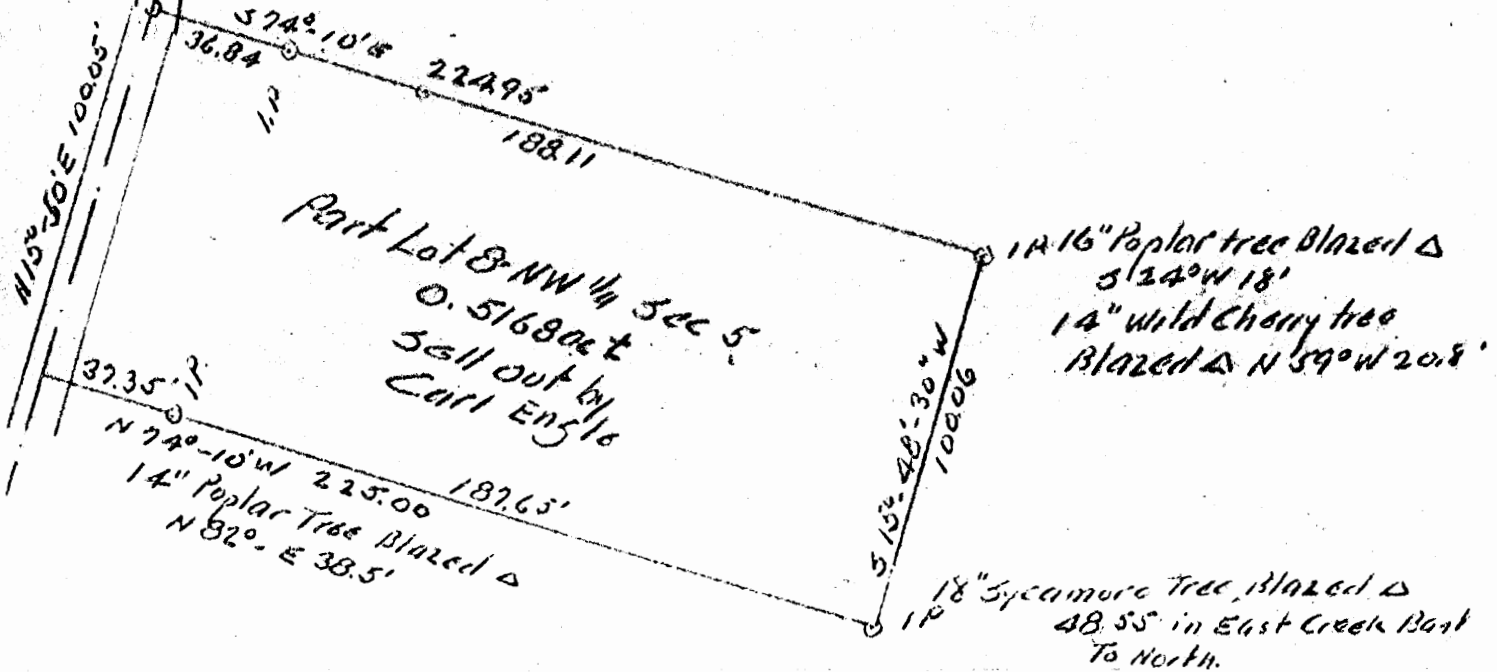 S 74°-10' E
36.84
224.95'
I.P.
188.11
N 15°-50' E 100.05'
Part Lot 8-NW 1/4 Sec 5,
0.5168 Ac ±
Sell out by
Carl Engle
I.P. 16" Poplar tree Blazed Δ
S 24° W 18'
14" Wild Cherry tree
Blazed Δ N 59° W 20.8'
S 15°-48'-30" W
100.06
37.35' I.P.
N 74°-10' W 225.00
187.65'
14" Poplar Tree Blazed Δ
N 82°- E 38.5'
I.P. 18" Sycamore Tree, Blazed Δ
48.55 in East Creek Bank
To North.